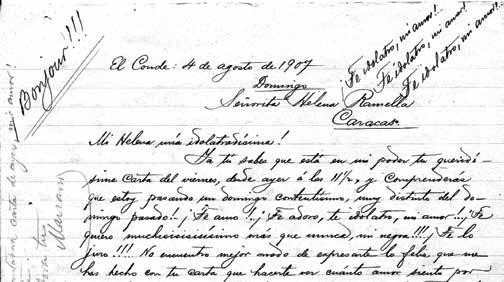 Bonjour!!!
¡Te idolatro, mi amor!
¡Te idolatro, mi amor!
¡Te idolatro, mi amor!!
El Conde: 4 de agosto de 1907
Domingo
Señorita Helena Ramella
Caracas
Mi Helena mía idolatradísima!
Ya tú sabes que está en mi poder tu queridí-
sima carta del viernes, desde ayer á las 11½, y comprenderás
que estoy pasando un domingo contentísimo, muy distinto del do-
mingo pasado! ¡Te amo!! ¡Te adoro, te idolatro, mi amor!! ¡Te
quiero muchisisisísimo más que nunca, mi negra!!! ¡Te lo
juro!!!! No encuentro mejor modo de expresarte lo feliz que me
has hecho con tu carta que hacerte ver cuánto amor siento por
carta de ayer, mi amor!
Mariano